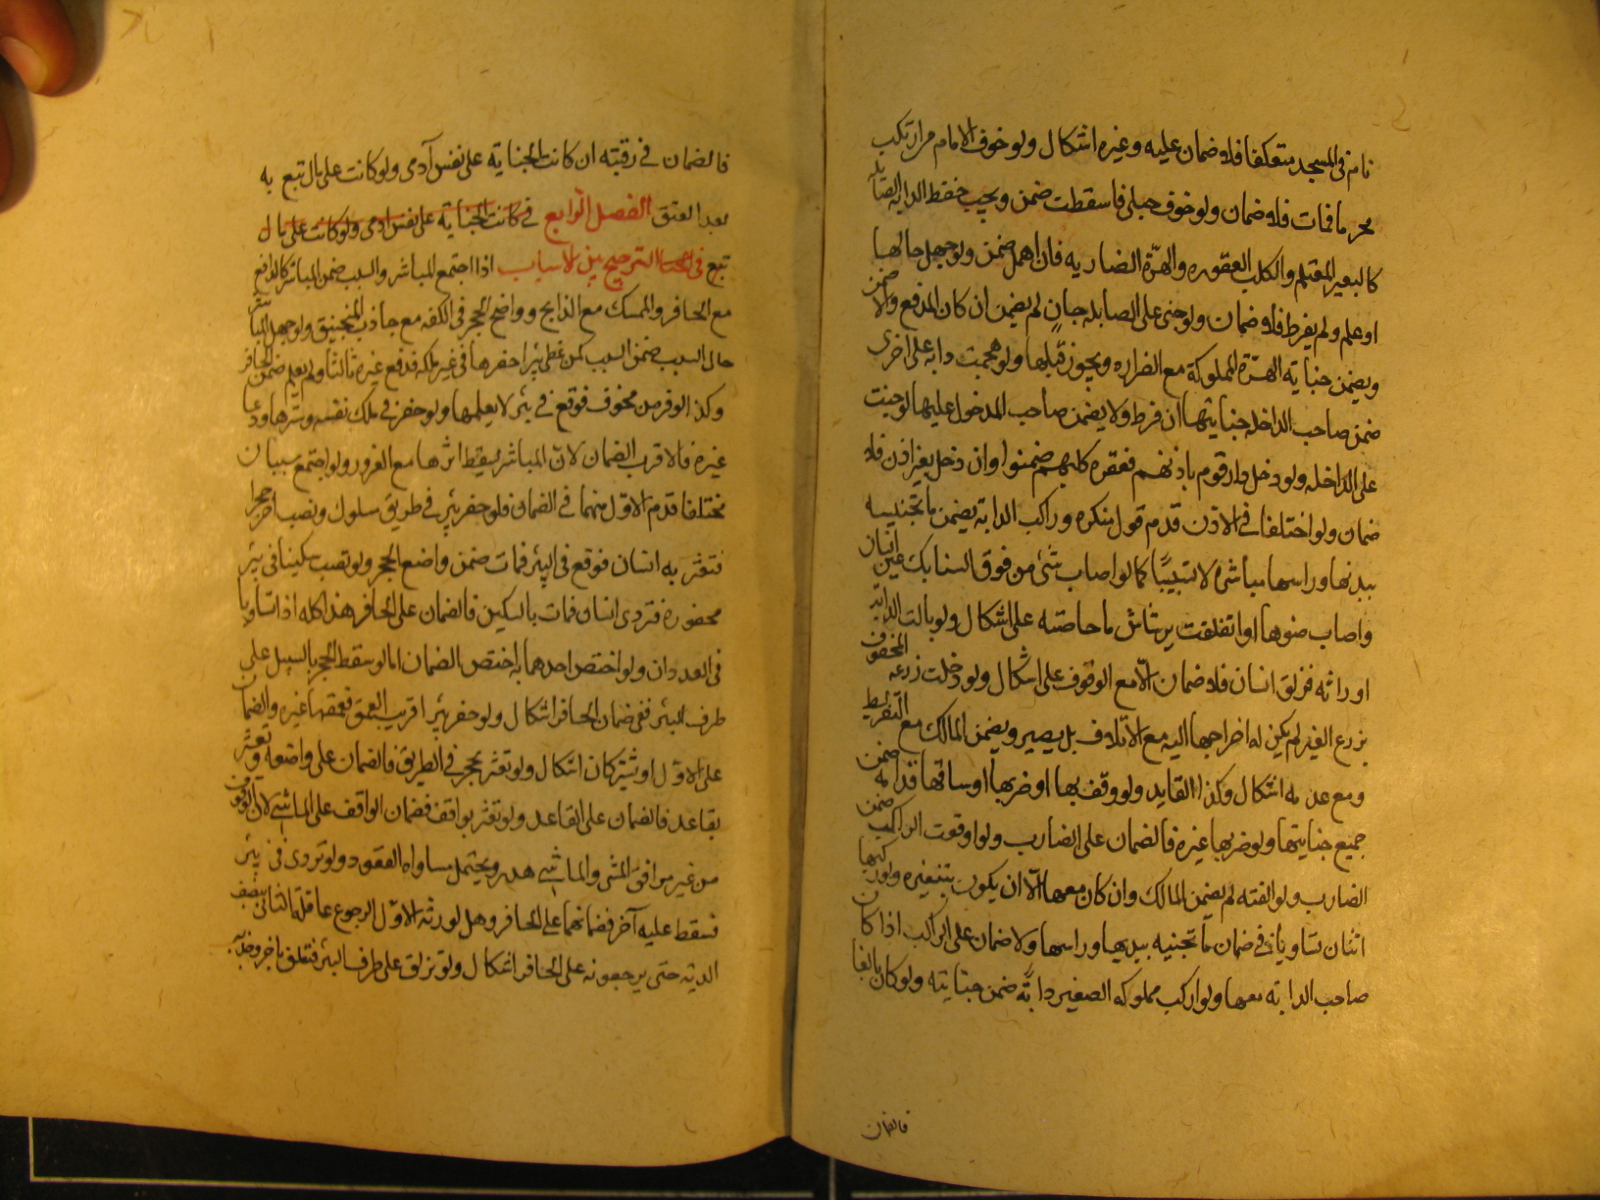 نام فى المسجد متعكفا فلا ضمان عليه وغيره اشكال ولو خوف الامام مرارتكب
محرما فمات فلا ضمان ولو خوف حبلى فاسقطت ضمن ويجب حفظ الدابه الصايله
كالبعير المغتلم والكلب العقوره والهرّة الضاريه فان اهمل ضمن ولو جهل حالها
او علم ولم يفرط فلا ضمان ولو جنى على الصايله جانٍ لم يضمن ان كان للدفع والا ضمن
ويضمن جناية الهرّة المملوكة مع الضراره ويجوز قتلها ولو هجمت دابه على اخرى
ضمن صاحب الداخله جنايتها ان فرط ولا يضمن صاحب المدخول عليها لو جنت
على الداخله ولو دخل دار قوم باذنهم فعقره كلبهم ضمنوا وان دخل بغير اذن فلا
ضمان ولو اختلفا فى الاذن قدم قول منكره وراكب الدابه يضمن ما تجنيه
بيدها وراسها مباشرة لا تسبيبًا كما لو اصاب شئ من فوق السنابك عين انسان
واصاب ضوءها او اتفلقت برشاش ما خاضته على اشكال ولو بالت الدابة
او راثه فزلق انسان فلا ضمان الّا مع الوقوف على اشكال ولو دخلت زرعه المحفوف
بزرع الغير لم يكن له اخراجها اليه مع الاتلاف بل يصبر ويضمن المالك مع التفريط
ومع عدمه اشكال وكذا القايد ولو وقف بها او ضربها او ساقها قدامه ضمن
جميع جنايتها ولو ضربها غيره فالضمان على الضارب ولو اوقعت الراكب ضمن
الضارب ولو القته لم يضمن المالك وان كان معها الّا ان يكون بتنفيره ولو ركبها
اثنان تساويا فى ضمان ما تجنيه بيديها وراسها ولا ضمان على الراكب اذا كان
صاحب الدابه معها ولو اركب مملوكه الصغير دابّة ضمن جنايته ولو كان بالغا
فالضمان
فالضمان فى رقبته ان كانت الجناية على نفس آدمى ولو كانت على مال تبع به
بعد العتق الفصل الرابع فى كانت الجناية على نفس ادمى ولو كانت على مال
تبع فى الترجيح بين الاسباب اذا اجتمع المباشر والسبب ضمن المباشر كالدافع
مع الحافر والممسك مع الذابح وواضع الحجر فى الكفه مع جاذب المنجنيق ولو جهل المباشر
حال السبب ضمن السبب كمن غطى بئرا حفرها فى غير ملكه فدفع غيره ثالثا ولم يعلم ضمن الحافر
وكذا لو فر من مخوف فوقع فى بئر لا يعلمها ولو حفر فى ملك نفسه وسترها ودعا
غيره فالاقرب الضمان لانّ المباشر يسقط اثرها مع الغرور ولو اجتمع سببان
مختلفا قدم الاوّل منهما فى الضمان فلو حفر بئر فى طريق سلوك ونصب اخر حجرا
فتعثر به انسان فوقع فى البئر فمات ضمن واضع الحجر ولو نصب سكينا فى بئر
محفوره فتردى انسان فمات بالسكين فالضمان على الحافر هذا كله اذا تساويا
فى العدوان ولو اختص احدهما به اختص الضمان اما لو سقط الحجر بالسيل على
طرف البئر ففى ضمان الحافر اشكال ولو حفر بئرا قريب العمق فعمقها غيره والضمان
على الاوّل او يشتركان اشكال ولو تعثر بحجر فى الطريق فالضمان على واضعه ولو تعثر
بقاعد فالضمان على القاعد ولو تعثر بواقف فضمان الواقف على الماشى لان الوقوف من
من غير مرافق المشى والماشى هدر ويحتمل مساواه القعود ولو تردى فى بئر
فسقط عليه آخر فضمانهما على الحافر وهل لورثه الاوّل الرجوع عاقلة الثانى بنصف
الديه حتى يرجعون به على الحافر اشكال ولو زلق على طرف البئر فتعلق باخر وجذبه